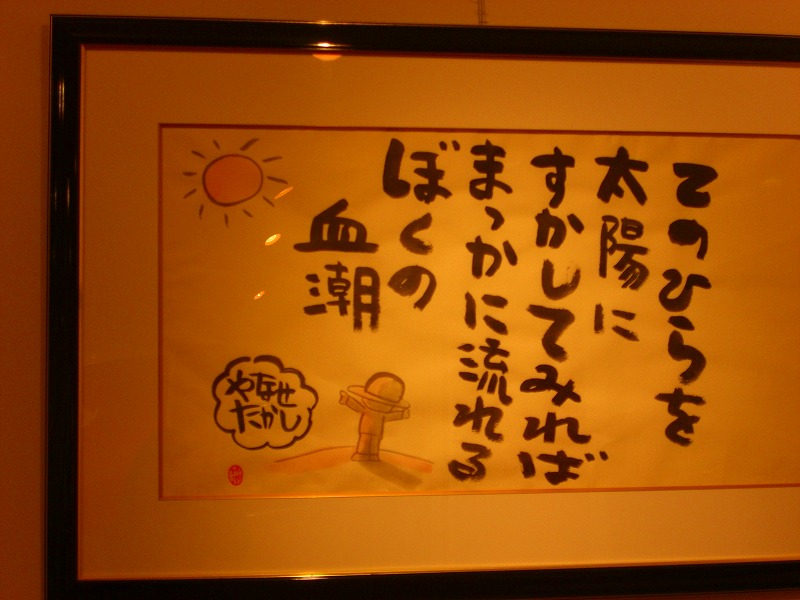 てのひらを
太陽に
すかしてみれば
まっかに流れる
ぼくの
血潮
やなせ
たかし